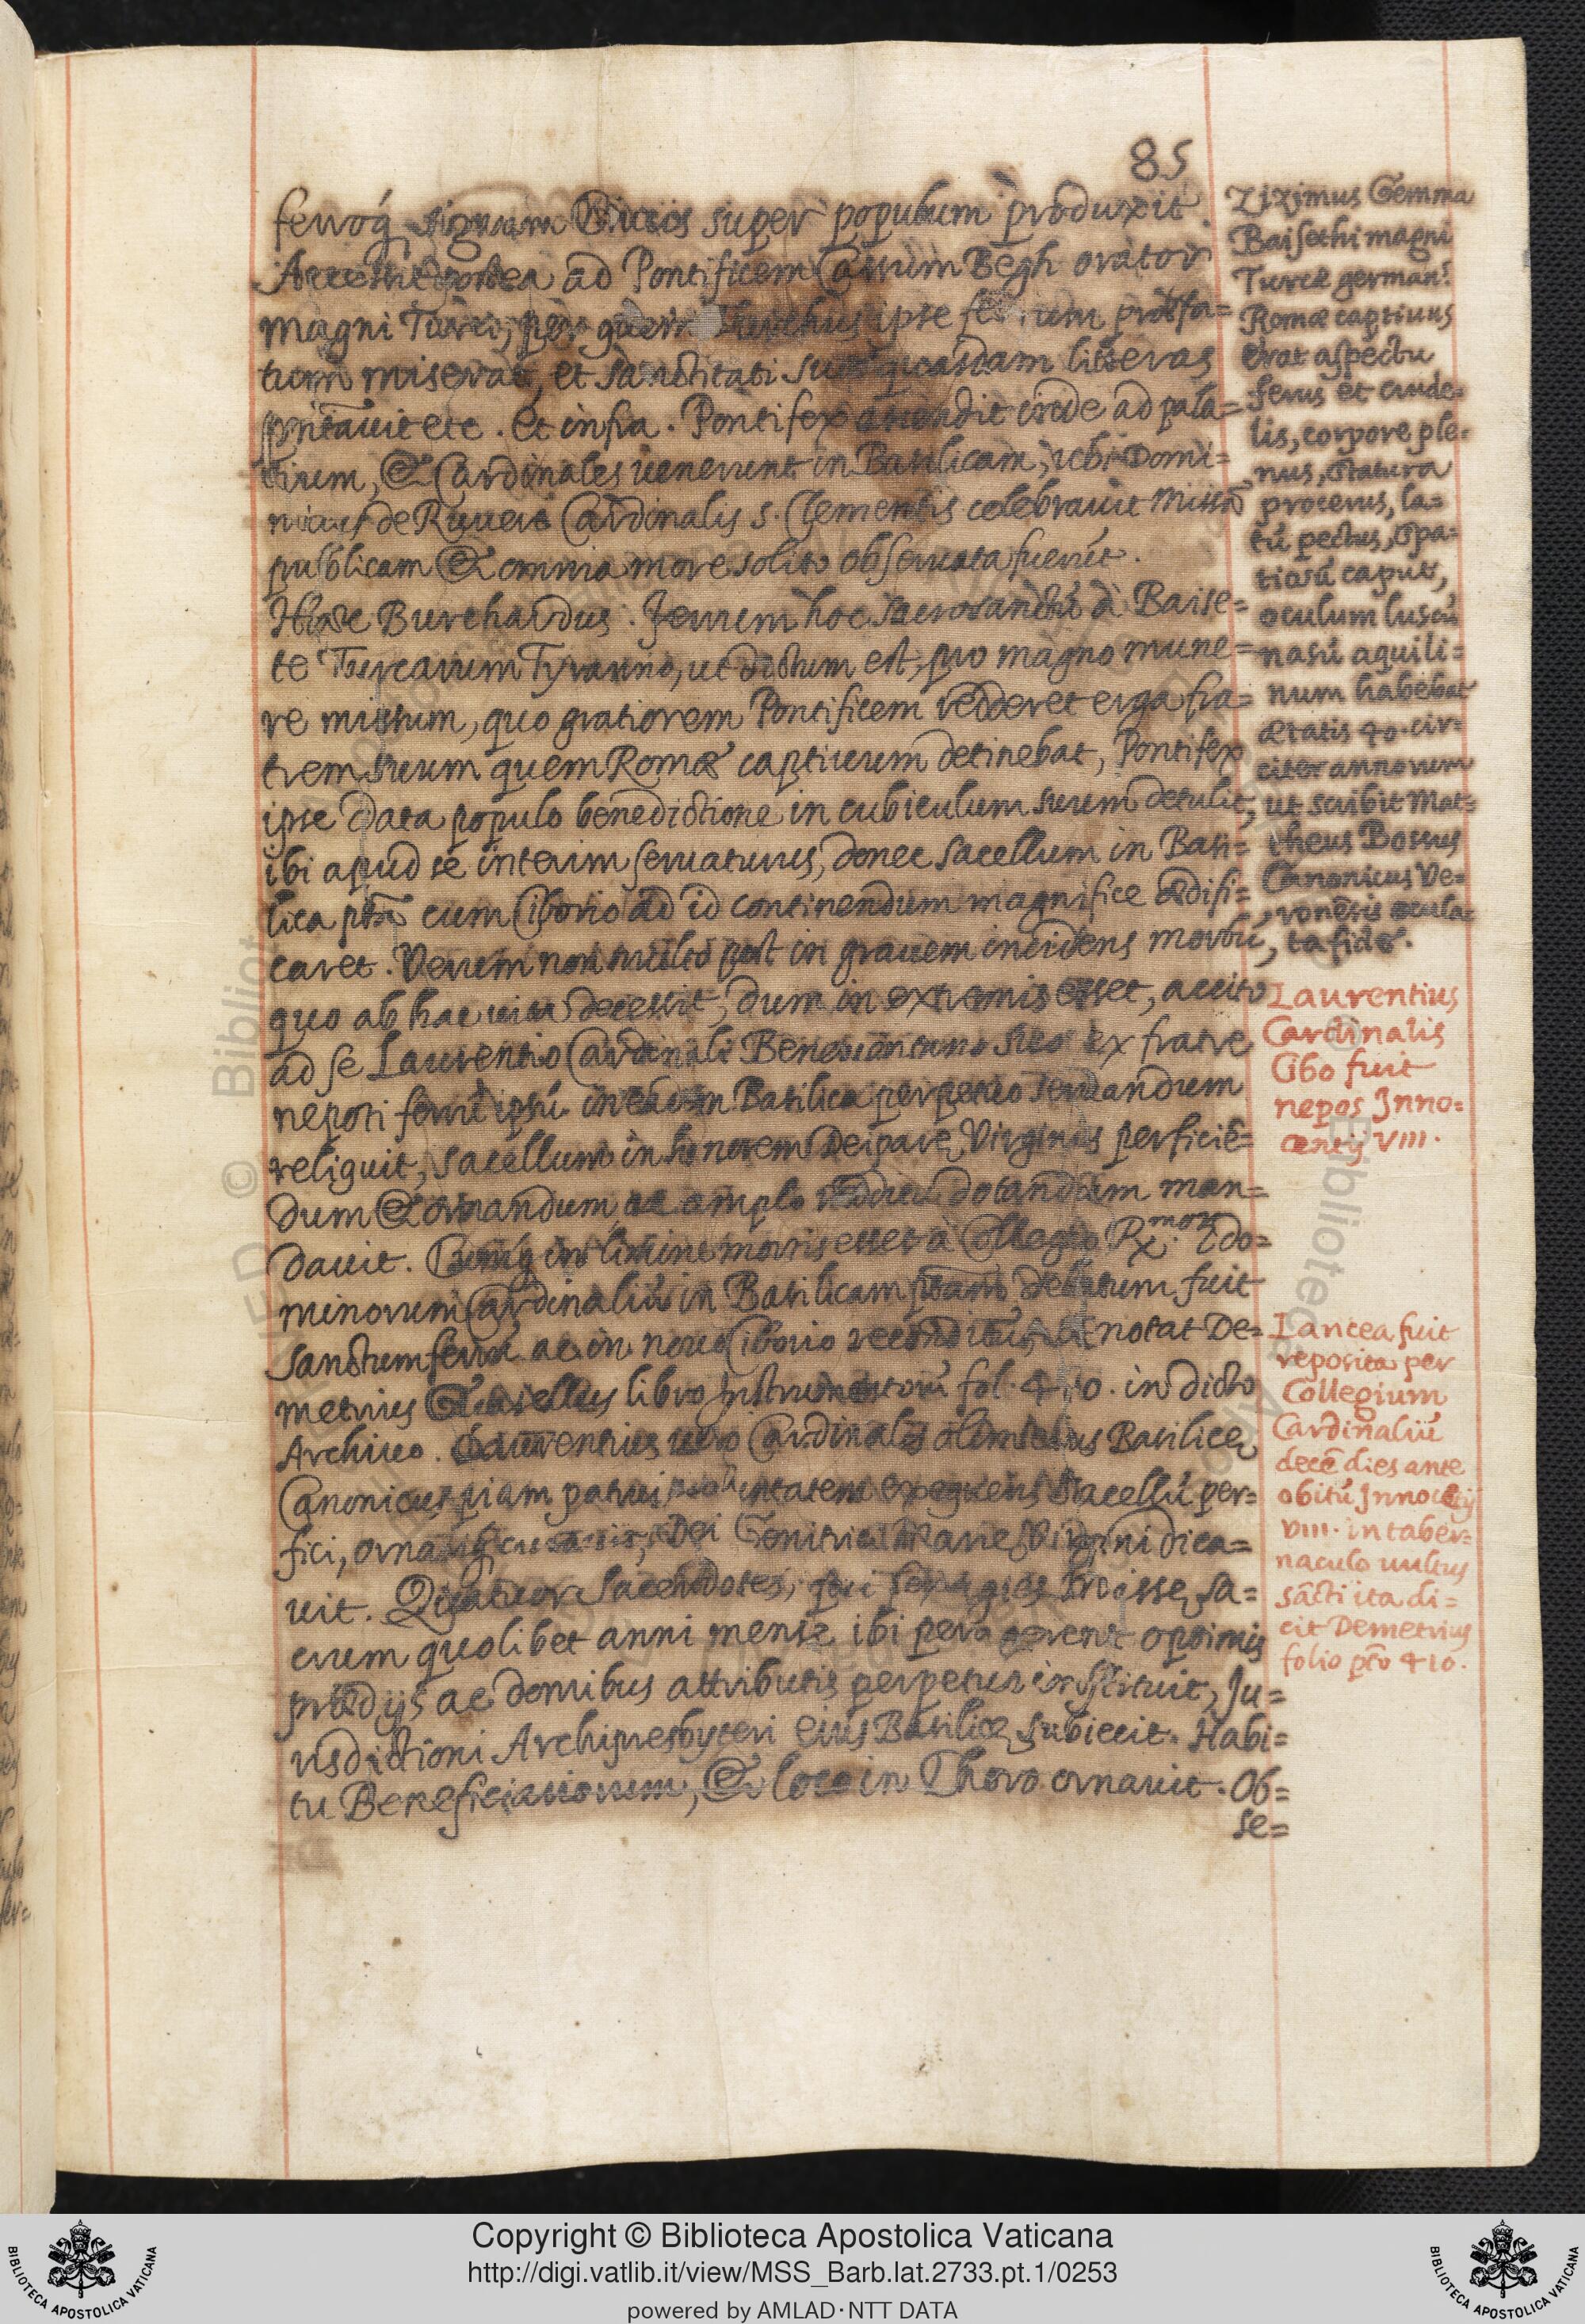 85
ferroq; signum Crucis super populum produxit.
Accessit postea ad Pontificem Cassum Begh orator
magni Turci, per quem Turchus ipse ferrum praefa=
tum miserat, et sanctitati suae quasdam litteras
pñtauit etc. Et infra. Pontifex ascendit inde ad pala=
tium, & Cardinales uenerunt in Basilicam, ubi Domi=
nicus de Ruuere Cardinalis S. Clementis celebrauit missã
publicam & omnia more solito obseruata fuerũt.
Haec Burchardus. Ferrum hoc sacrosanctũ à Baise=
te Turcarum Tyranno, ut dictum est, pro magno mune=
re missum, quo gratiorem Pontificem redderet erga fra=
trem suum quem Romae captiuum detinebat, Pontifex
ipse data populo benedictione in cubiculum suum detulit,
ibi apud se interim seruaturus, donec sacellum in Basi=
lica ptã cum Ciborio ad id continendum magnifice aedifi=
caret. Verum non multo post in grauem incidens morbũ,
quo ab hac uita decessit, dum in extremis esset, accito
ad se Laurentio Cardinali Beneuentano suo ex fratre
nepoti ferrũ ipsũ in eadem Basilica perpetuo seruandum
reliquit, sacellum in honorem Deiparae Virginis perficiẽ=
dum & ornandum ac amplo redditu dotandum man=
dauit. Cumq; in limine mortis esset à Collegio R.mor. Do=
minorum Cardinaliũ in Basilicam ptam delatum fuit
sanctum ferrũ ac in nouo Ciborio reconditum, ut notat De=
metrius Guasellus libro Instrumentorũ fol. 410. in dicto
Archiuo. Laurentius uero Cardinalis olim huius Basilicae
Canonicus piam patrui uoluntatem exequens Sacellũ per=
fici, ornariq; curauit, Dei Genitrici Mariae Virgini dica=
uit. Quatuor Sacerdotes, qui sexagies Missae sa=
crum quolibet anni mense ibi peragerent optimis
praedijs ac domibus attributis perpetuo instituit, Ju=
risdictioni Archipresbyteri eius Basilicae subiecit. Habi=
tu Beneficiatorum, & loco in Choro ornauit. Ob=
se=
Zizimus Gemma
Baisethi magni
Turcae german.s
Romae captiuus
erat aspectu
ferus et crude=
lis, corpore ple=
nus, statura
procerus, la=
tũ pectus, spa=
tiosũ caput,
oculum luscũ
nasũ aquili=
num habebat
aetatis 40. cir=
citer annorum
ut scribit Mat=
theus Bossus
Canonicus Ve=
ronẽsis ocula=
ta fide.
Laurentius
Cardinalis
Cibo fuit
nepos Inno=
centij VIII.
Lancea fuit
reposita per
Collegium
Cardinaliũ
decẽ dies ante
obitũ Innocẽtij
VIII. in taber=
naculo uultus
sãcti ita di=
cit Demetrius
folio pto 410.
Copyright © Biblioteca Apostolica Vaticana
http://digi.vatlib.it/view/MSS_Barb.lat.2733.pt.1/0253
powered by AMLAD·NTT DATA
BIBLIOTECA APOSTOLICA VATICANA
BIBLIOTECA APOSTOLICA VATICANA